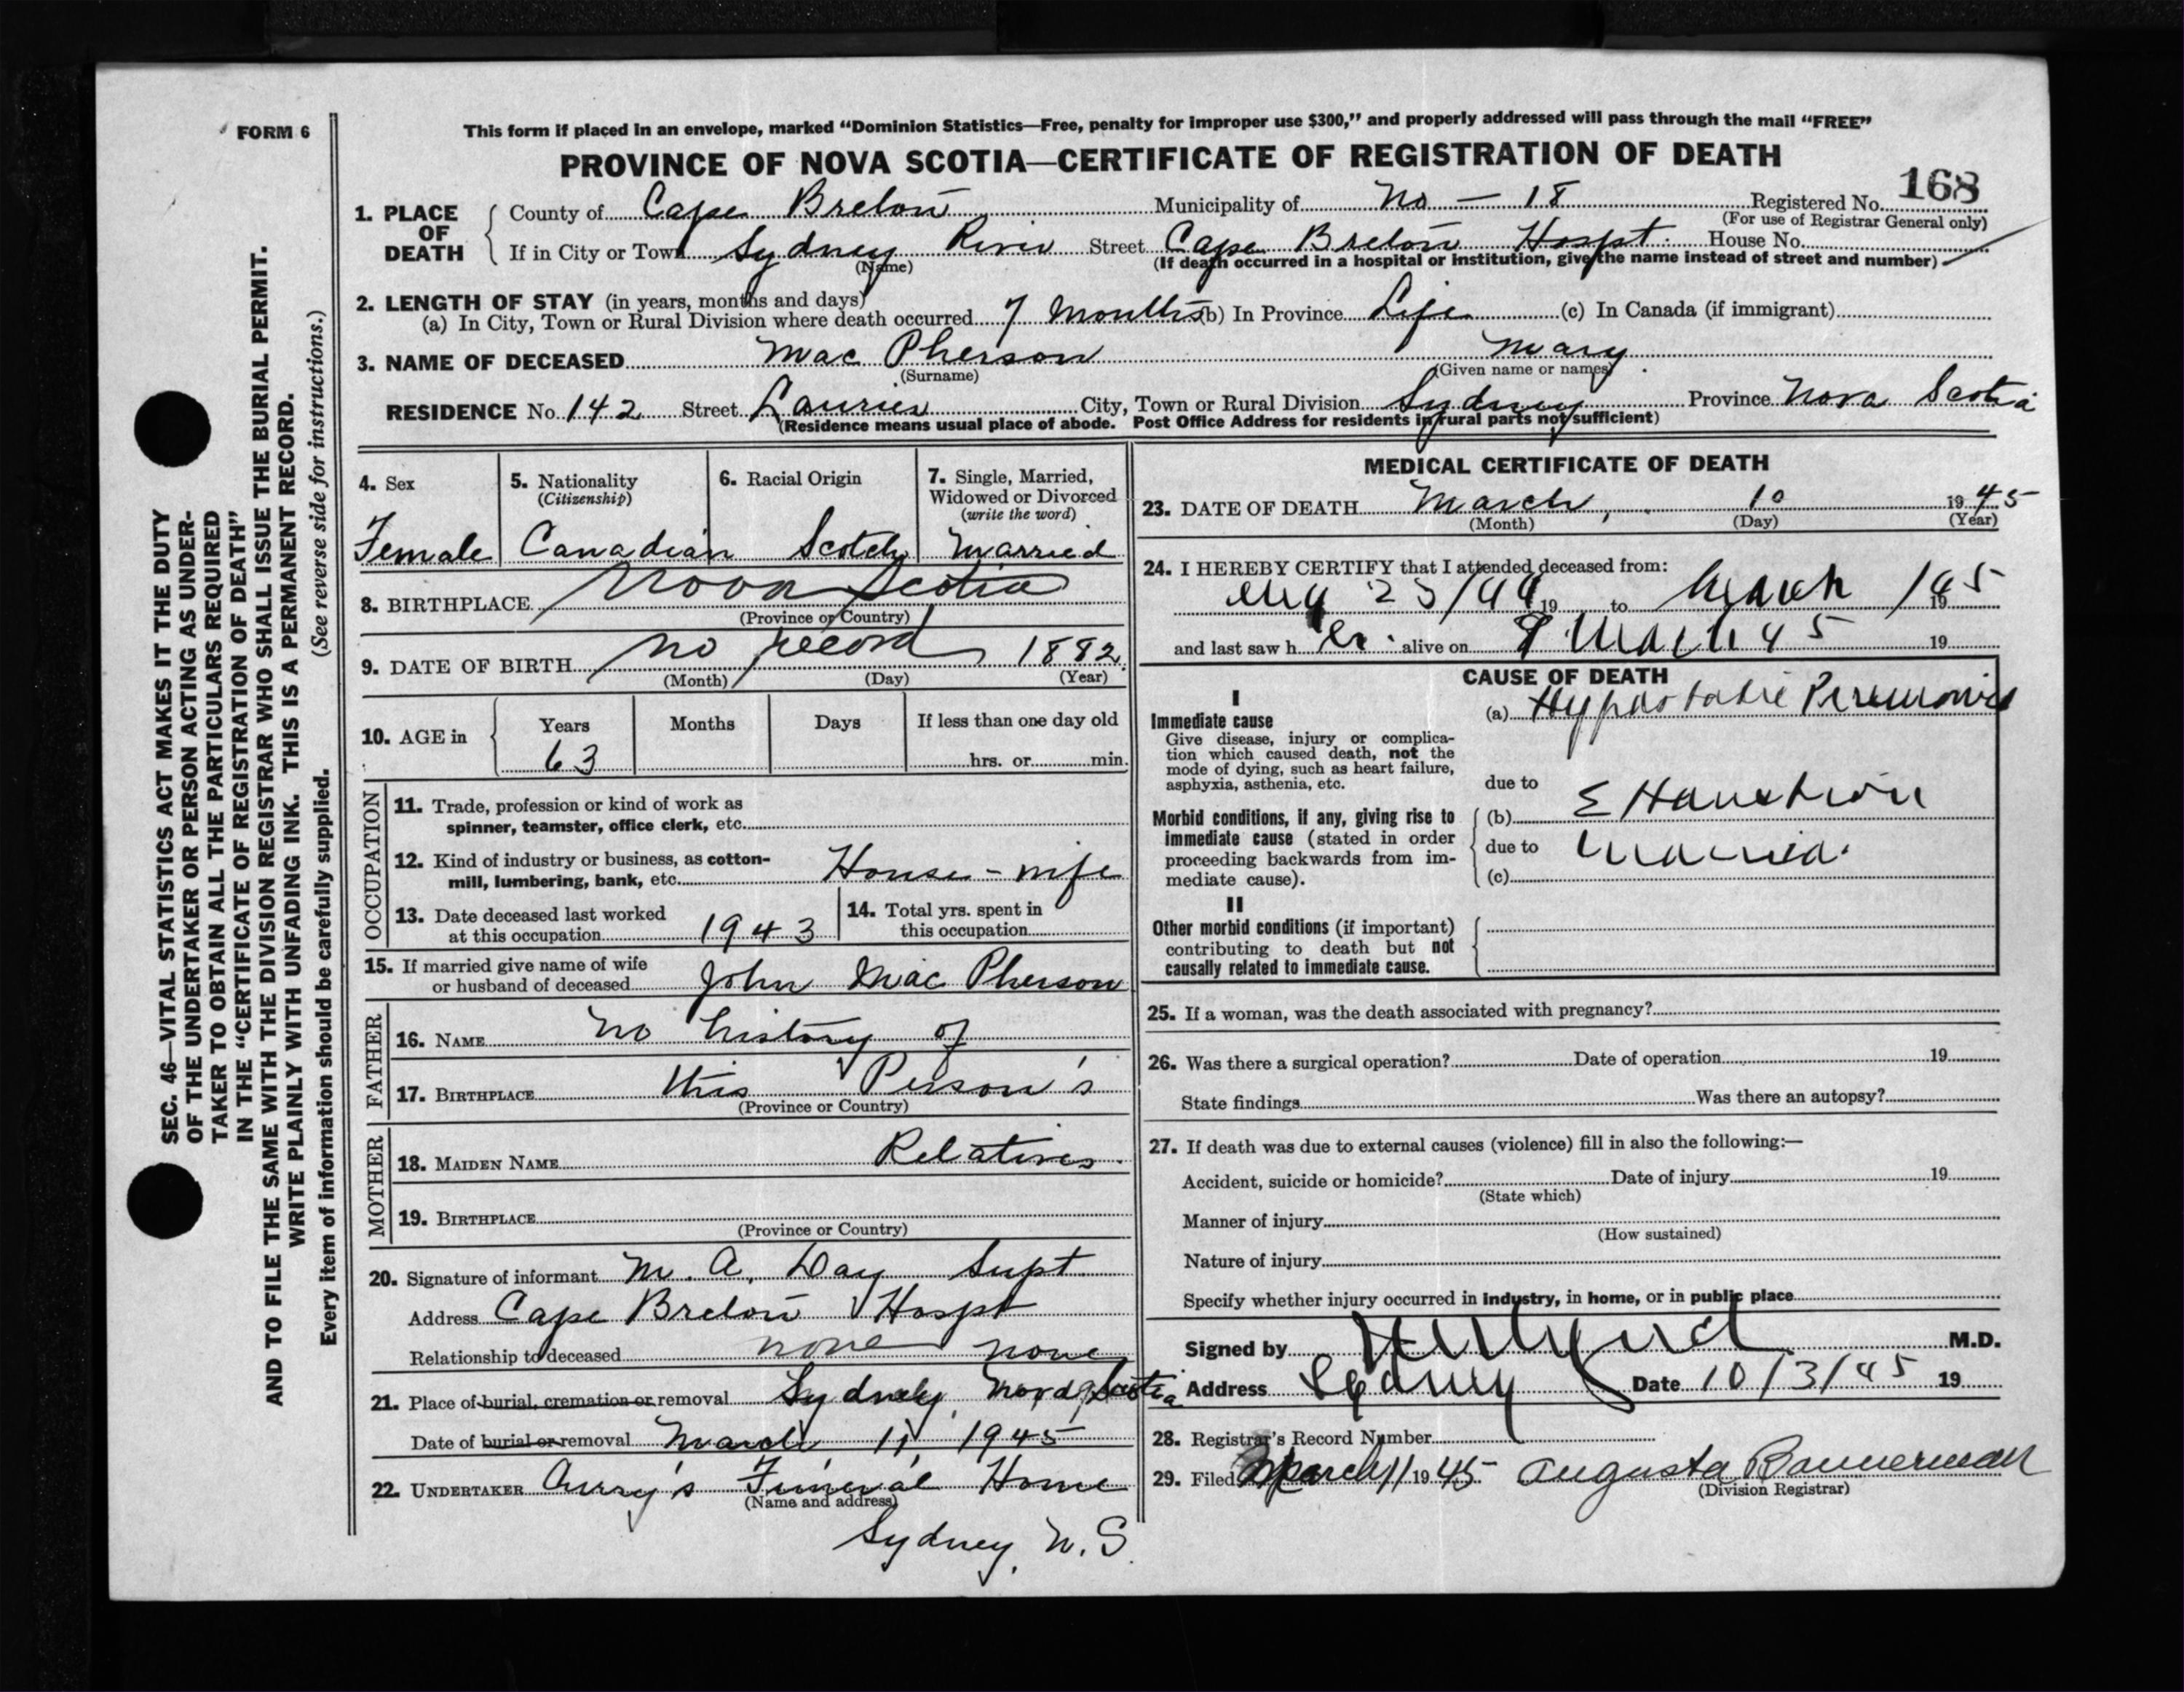 FORM 6
This form if placed in an envelope, marked “Dominion Statistics—Free, penalty for improper use $300,” and properly addressed will pass through the mail “FREE”
PROVINCE OF NOVA SCOTIA—CERTIFICATE OF REGISTRATION OF DEATH
168
1. PLACE OF DEATH County of Cape Breton Municipality of No — 18 Registered No.
(For use of Registrar General only)
If in City or Town Sydney River Street Cape Breton Hospt. House No.
(Name) (If death occurred in a hospital or institution, give the name instead of street and number)
2. LENGTH OF STAY (in years, months and days)
(a) In City, Town or Rural Division where death occurred 7 Months (b) In Province Life (c) In Canada (if immigrant)
3. NAME OF DECEASED Mac Pherson Mary
(Surname) (Given name or names)
RESIDENCE No. 142 Street Laurier City, Town or Rural Division Sydney Province Nova Scotia
(Residence means usual place of abode. Post Office Address for residents in rural parts not sufficient)
4. Sex
Female
5. Nationality
(Citizenship)
Canadian
6. Racial Origin
Scotch
7. Single, Married,
Widowed or Divorced
(write the word)
Married
8. BIRTHPLACE Nova Scotia
(Province or Country)
9. DATE OF BIRTH no record 1882
(Month) (Day) (Year)
10. AGE in Years Months Days If less than one day old
63 hrs. or min.
OCCUPATION
11. Trade, profession or kind of work as
spinner, teamster, office clerk, etc.
12. Kind of industry or business, as cotton-
mill, lumbering, bank, etc. House-wife
13. Date deceased last worked
at this occupation 1943
14. Total yrs. spent in
this occupation
15. If married give name of wife
or husband of deceased John Mac Pherson
FATHER
16. NAME no history of
17. BIRTHPLACE this Person's
(Province or Country)
MOTHER
18. MAIDEN NAME Relatives
19. BIRTHPLACE
(Province or Country)
20. Signature of informant M. A. Day Supt
Address Cape Breton Hospt
Relationship to deceased none none
21. Place of burial, cremation or removal Sydney, Nova Scotia
Date of burial or removal March 11, 1945
22. UNDERTAKER Curry's Funeral Home
(Name and address)
Sydney, N.S.
MEDICAL CERTIFICATE OF DEATH
23. DATE OF DEATH March, 10 1945
(Month) (Day) (Year)
24. I HEREBY CERTIFY that I attended deceased from:
Aug 23/44 19 to March /45 19
and last saw h er alive on 9 March 45 19
CAUSE OF DEATH
I
Immediate cause
Give disease, injury or complica-
tion which caused death, not the
mode of dying, such as heart failure,
asphyxia, asthenia, etc.
(a) Hypostatic Pneumonia
due to
Morbid conditions, if any, giving rise to
immediate cause (stated in order
proceeding backwards from im-
mediate cause).
(b) Exhaustion
due to
(c)
II
Other morbid conditions (if important)
contributing to death but not
causally related to immediate cause.
25. If a woman, was the death associated with pregnancy?
26. Was there a surgical operation? Date of operation 19
State findings Was there an autopsy?
27. If death was due to external causes (violence) fill in also the following:—
Accident, suicide or homicide? Date of injury 19
(State which)
Manner of injury
(How sustained)
Nature of injury
Specify whether injury occurred in industry, in home, or in public place
Signed by M.D.
Address Sydney Date 10/3/45 19
28. Registrar's Record Number
29. Filed March 11 1945 Augusta Bannerman
(Division Registrar)
SEC. 46—VITAL STATISTICS ACT MAKES IT THE DUTY
OF THE UNDERTAKER OR PERSON ACTING AS UNDER-
TAKER TO OBTAIN ALL THE PARTICULARS REQUIRED
IN THE “CERTIFICATE OF REGISTRATION OF DEATH”
AND TO FILE THE SAME WITH THE DIVISION REGISTRAR WHO SHALL ISSUE THE BURIAL PERMIT.
WRITE PLAINLY WITH UNFADING INK. THIS IS A PERMANENT RECORD.
Every item of information should be carefully supplied. (See reverse side for instructions.)